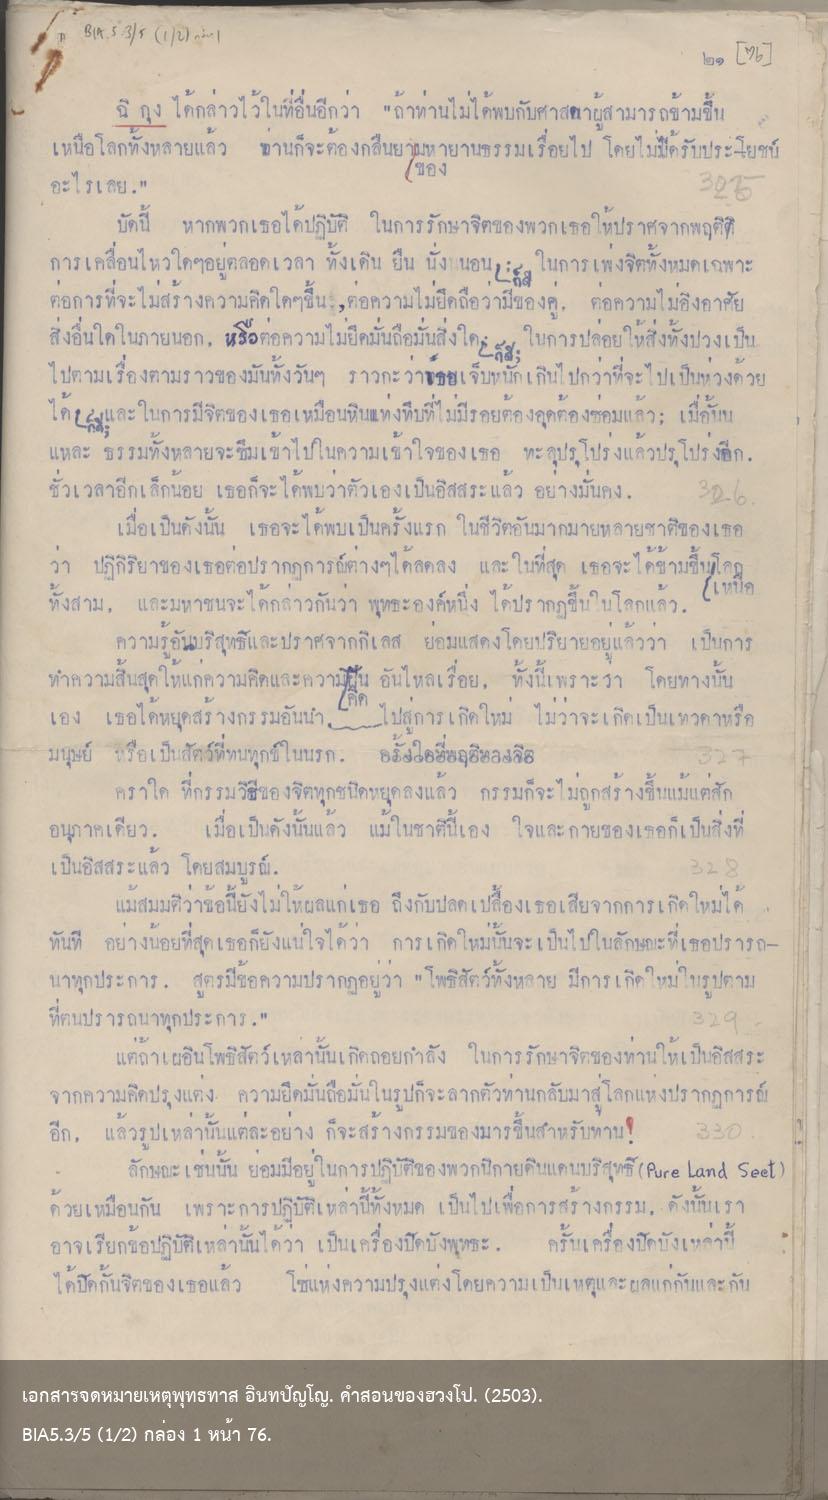 BIA 5.3/5 (1/2) กล่อง 1
๒๑ [76]
ฉี กุง ได้กล่าวไว้ในที่อื่นอีกว่า "ถ้าท่านไม่ได้พบกับศาสดาผู้สามารถข้ามขึ้น
เหนือโลกทั้งหลายแล้ว ท่านก็จะต้องกลืนยาของมหายานธรรมเรื่อยไป โดยไม่ได้รับประโยชน์
อะไรเลย."
325
บัดนี้ หากพวกเธอได้ปฏิบัติ ในการรักษาจิตของพวกเธอให้ปราศจากพฤติ
การเคลื่อนไหวใดๆอยู่ตลอดเวลา ทั้งเดิน ยืน นั่ง นอน ก็ดี; ในการเพ่งจิตทั้งหมดเฉพาะ
ต่อการที่จะไม่สร้างความคิดใดๆขึ้น, ต่อความไม่ยึดถือว่ามีของคู่, ต่อความไม่อิงอาศัย
สิ่งอื่นใดในภายนอก, หรือต่อความไม่ยึดมั่นถือมั่นสิ่งใด ก็ดี; ในการปล่อยให้สิ่งทั้งปวงเป็น
ไปตามเรื่องตามราวของมันทั้งวันๆ ราวกะว่าเธอเจ็บหนักเกินไปกว่าที่จะไปเป็นห่วงด้วย
ได้ ก็ดี; และในการมีจิตของเธอเหมือนหินแท่งทึบที่ไม่มีรอยต้องอุดต้องซ่อมแล้ว; เมื่อนั้น
แหละ ธรรมทั้งหลายจะซึมเข้าไปในความเข้าใจของเธอ ทะลุปรุโปร่งแล้วปรุโปร่งอีก.
ชั่วเวลาอีกเล็กน้อย เธอก็จะได้พบว่าตัวเองเป็นอิสสระแล้ว อย่างมั่นคง.
326.
เมื่อเป็นดังนั้น เธอจะได้พบเป็นครั้งแรก ในชีวิตอันมากมายหลายชาติของเธอ
ว่า ปฏิกิริยาของเธอต่อปรากฏการณ์ต่างๆได้ลดลง และในที่สุด เธอจะได้ข้ามขึ้นเหนือโลก
ทั้งสาม, และมหาชนจะได้กล่าวกันว่า พุทธะองค์หนึ่ง ได้ปรากฏขึ้นในโลกแล้ว.
ความรู้อันบริสุทธิ์และปราศจากกิเลส ย่อมแสดงโดยปริยายอยู่แล้วว่า เป็นการ
ทำความสิ้นสุดให้แก่ความคิดและความคิดฝัน อันไหลเรื่อย, ทั้งนี้เพราะว่า โดยทางนั้น
เอง เธอได้หยุดสร้างกรรมอันนำไปสู่การเกิดใหม่ ไม่ว่าจะเกิดเป็นเทวดาหรือ
มนุษย์ หรือเป็นสัตว์ที่ทนทุกข์ในนรก.
327
คราใด ที่กรรมวิธีของจิตทุกชนิดหยุดลงแล้ว กรรมก็จะไม่ถูกสร้างขึ้นแม้แต่สัก
อนุภาคเดียว. เมื่อเป็นดังนั้นแล้ว แม้ในชาตินี้เอง ใจและกายของเธอก็เป็นสิ่งที่
เป็นอิสสระแล้ว โดยสมบูรณ์.
328
แม้สมมติว่าข้อนี้ยังไม่ให้ผลแก่เธอ ถึงกับปลดเปลื้องเธอเสียจากการเกิดใหม่ได้
ทันที อย่างน้อยที่สุดเธอก็ยังแน่ใจได้ว่า การเกิดใหม่นั้นจะเป็นไปในลักษณะที่เธอปรารถ-
นาทุกประการ. สูตรมีข้อความปรากฏอยู่ว่า "โพธิสัตว์ทั้งหลาย มีการเกิดใหม่ในรูปตาม
ที่ตนปรารถนาทุกประการ."
329
แต่ถ้าเผอิญโพธิสัตว์เหล่านั้นเกิดถอยกำลัง ในการรักษาจิตของท่านให้เป็นอิสสระ
จากความคิดปรุงแต่ง ความยึดมั่นถือมั่นในรูปก็จะลากตัวท่านกลับมาสู่โลกแห่งปรากฏการณ์
อีก, แล้วรูปเหล่านั้นแต่ละอย่าง ก็จะสร้างกรรมของมารขึ้นสำหรับท่าน!
330
ลักษณะเช่นนั้น ย่อมมีอยู่ในการปฏิบัติของพวกนิกายดินแดนบริสุทธิ์ (Pure Land Sect)
ด้วยเหมือนกัน เพราะการปฏิบัติเหล่านี้ทั้งหมด เป็นไปเพื่อการสร้างกรรม, ดังนั้นเรา
อาจเรียกข้อปฏิบัติเหล่านั้นได้ว่า เป็นเครื่องปิดบังพุทธะ. ครั้นเครื่องปิดบังเหล่านี้
ได้ปิดกั้นจิตของเธอแล้ว โซ่แห่งความปรุงแต่งโดยความเป็นเหตุและผลแก่กันและกัน
เอกสารจดหมายเหตุพุทธทาส อินทปัญโญ. คำสอนของฮวงโป. (2503).
BIA5.3/5 (1/2) กล่อง 1 หน้า 76.